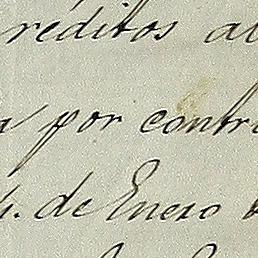 réditos al
a por contr
4. de Enero